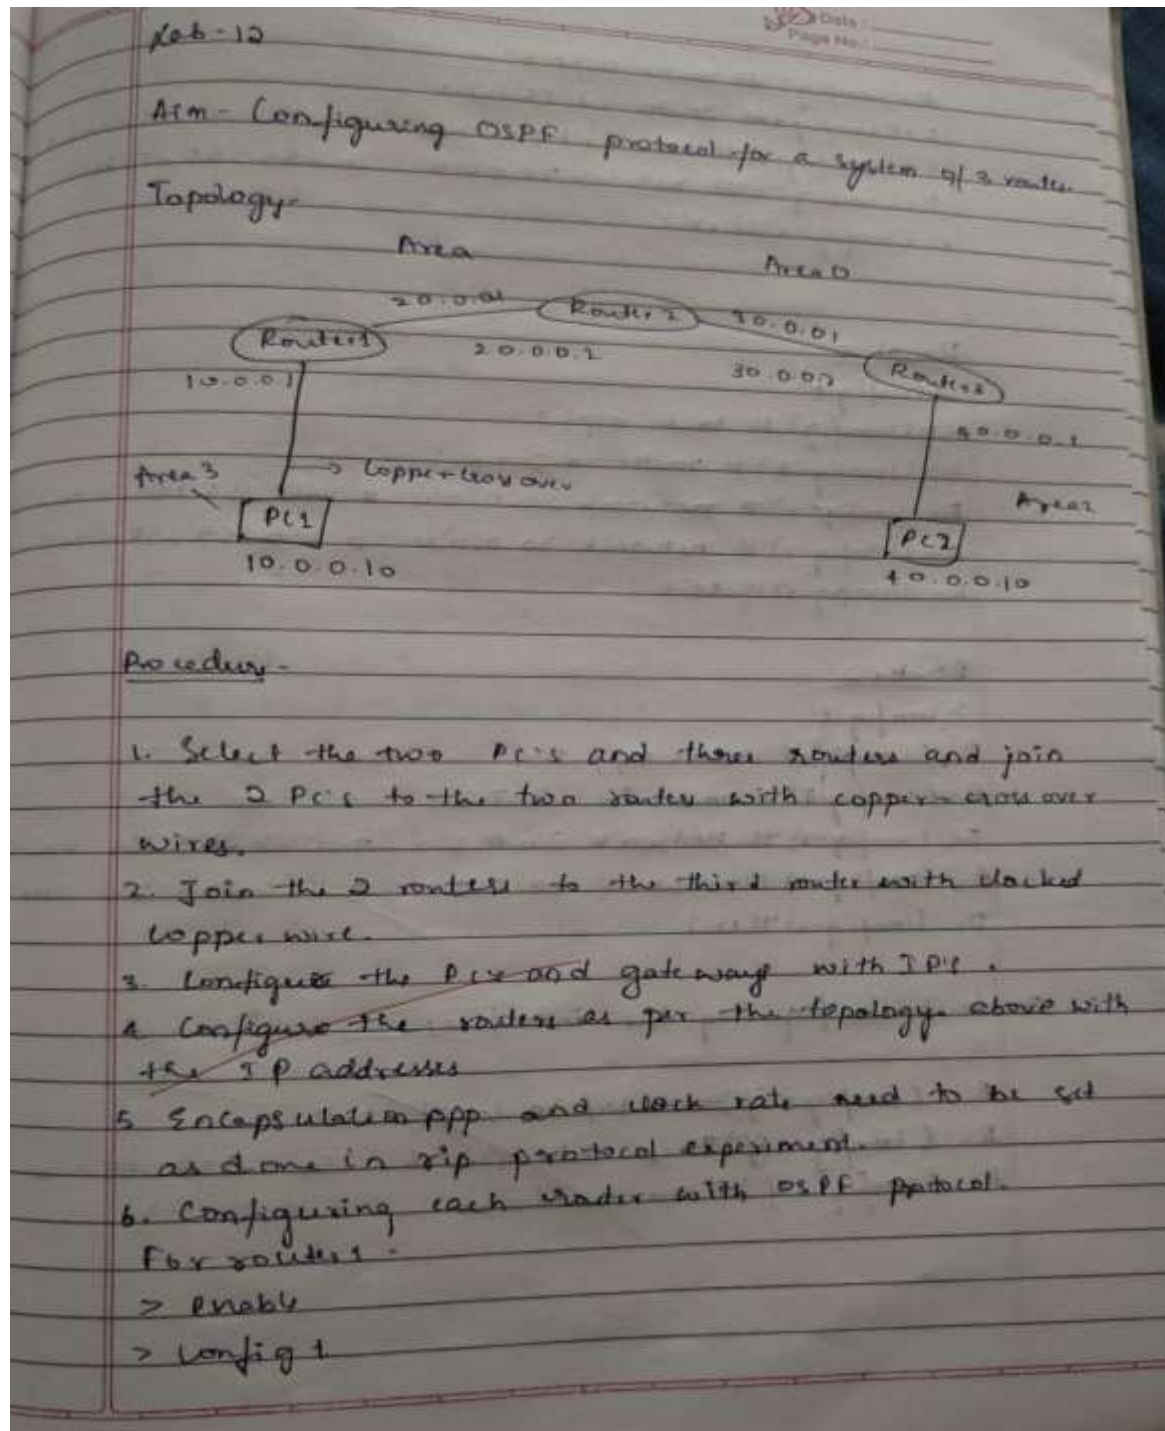 Date:
Page No.:
Lab-12
Aim - Configuring OSPF protocol for a system of 3 router.
Topology-
Area
Area 0
20.0.01
Router 2
30.0.01
Router1
20.0.0.2
10.0.0.1
30.0.02
Router3
40.0.0.1
Area 3
Copper cross over
Area2
PC1
PC2
10.0.0.10
40.0.0.10
Procedure -
1. Select the two PC's and three routers and join
the 2 PC's to the two router with copper-cross over
wires.
2. Join the 2 routers to the third router with clocked
copper wire.
3. Configure the PC's and gateways with IP's.
4 Configure the routers as per the topology above with
the IP addresses
5 Encapsulation ppp and clock rate need to be set
as done in rip protocol experiment.
6. Configuring each router with OSPF protocol.
For router 1 -
> enable
> config t